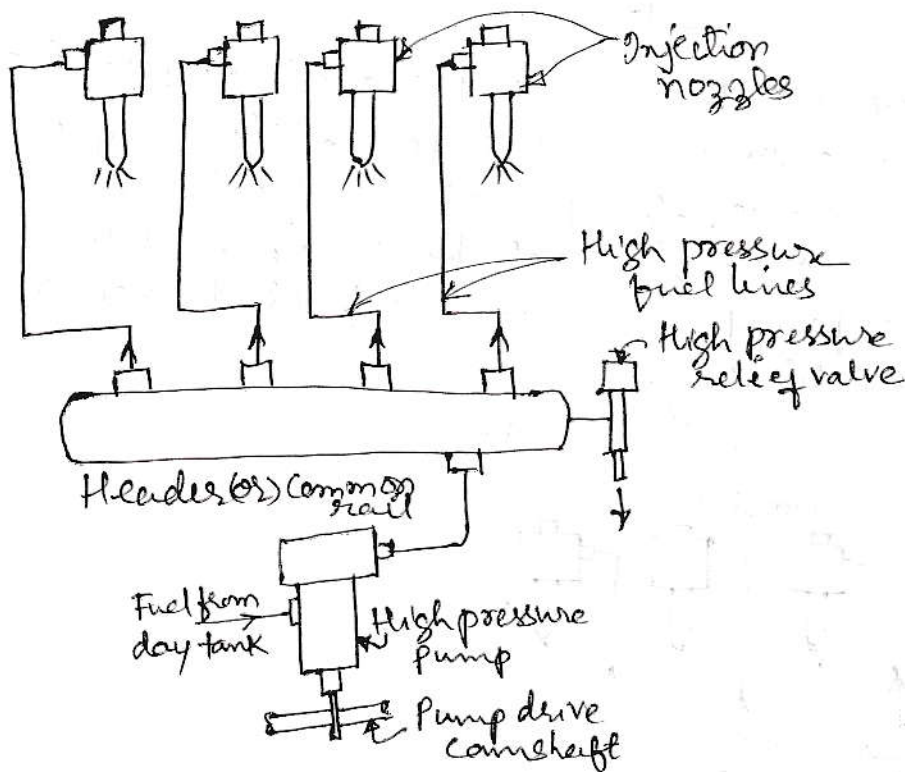 Injection
nozzles
High pressure
fuel lines
High pressure
relief valve
Header (or) Common
rail
Fuel from
day tank
High pressure
Pump
Pump drive
camshaft